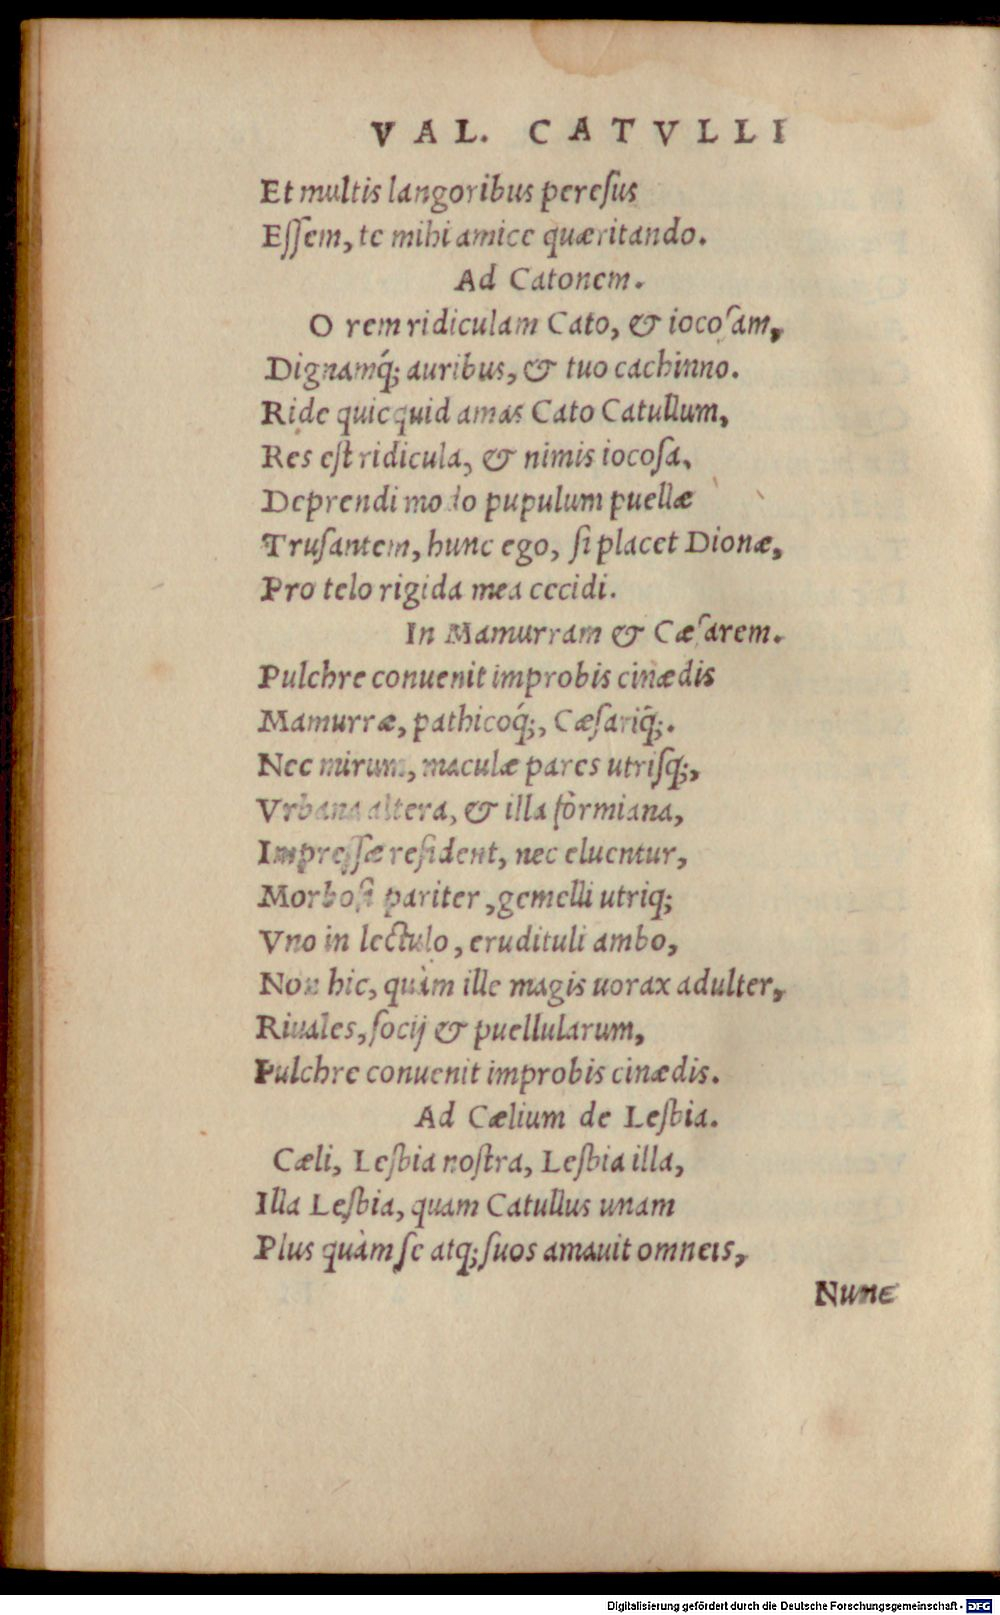 VAL. CATVLLI
Et multis langoribus pereſus
Eſſem, te mihi amice quæritando.
Ad Catonem.
O rem ridiculam Cato, & iocoſam,
Dignamq́; auribus, & tuo cachinno.
Ride quicquid amas Cato Catullum,
Res eſt ridicula, & nimis iocoſa,
Deprendi modo pupulum puellæ
Truſantem, hunc ego, ſi placet Dionæ,
Pro telo rigida mea cecidi.
In Mamurram & Cæſarem.
Pulchre conuenit improbis cinædis
Mamurræ, pathicoq́;, Cæſariq́;.
Nec mirum, maculæ pares utriſq;,
Vrbana altera, & illa formiana,
Impreſſæ reſident, nec eluentur,
Morboſi pariter, gemelli utriq;
Vno in lectulo, erudituli ambo,
Non hic, quàm ille magis uorax adulter,
Riuales, ſocij & puellularum,
Pulchre conuenit improbis cinædis.
Ad Cælium de Leſbia.
Cæli, Leſbia noſtra, Leſbia illa,
Illa Leſbia, quam Catullus unam
Plus quàm ſe atq; ſuos amauit omneis,
Nunc
Digitalisierung gefördert durch die Deutsche Forschungsgemeinschaft - DFG